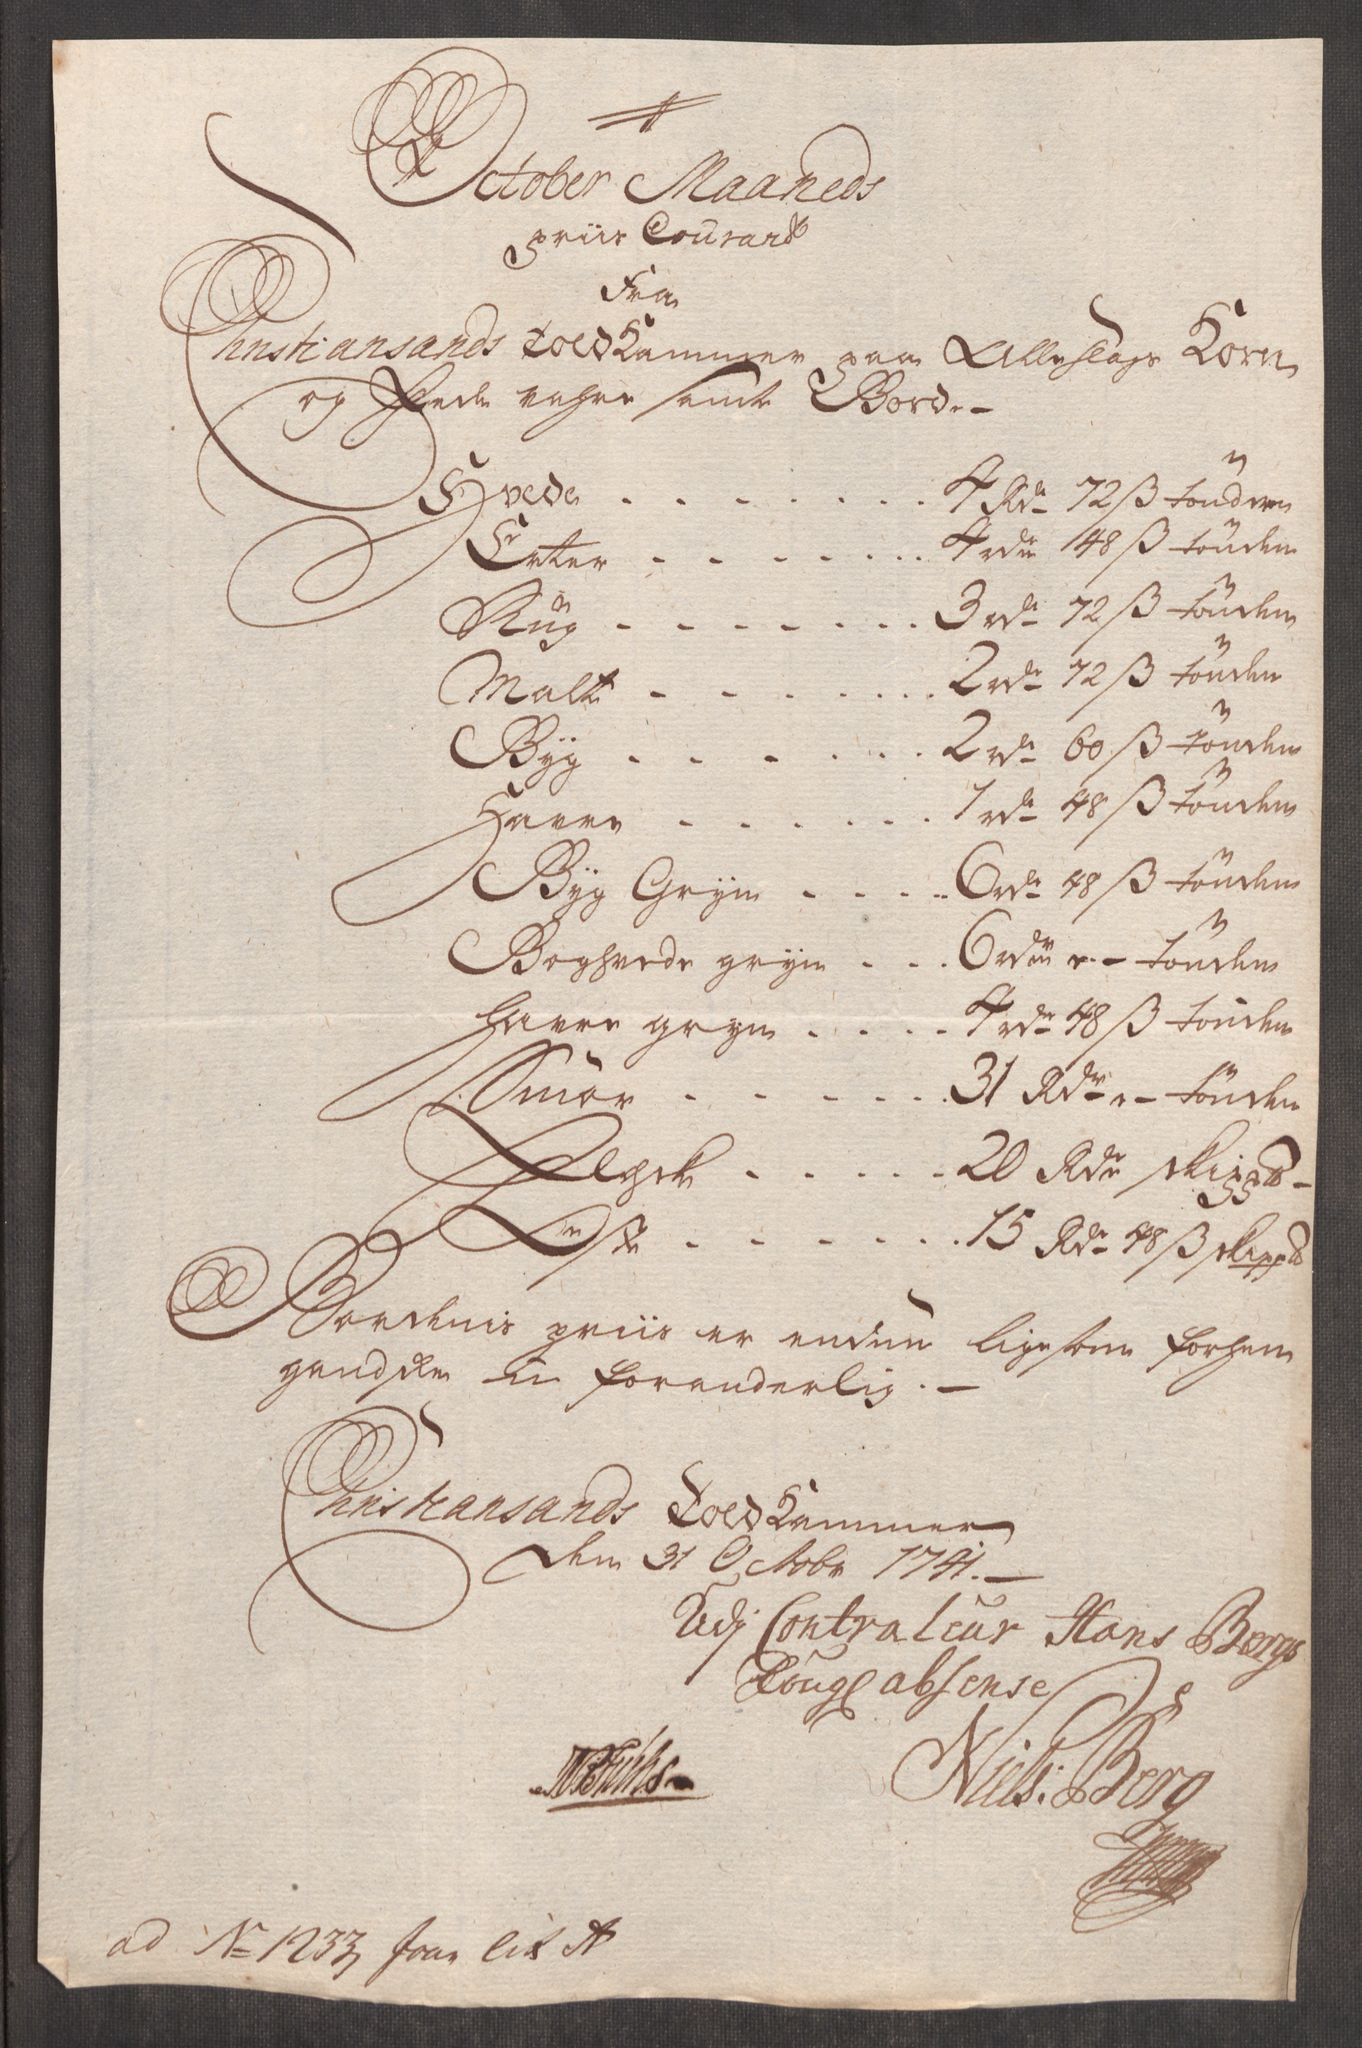 October Maaneds
priis Courant
Fra
Christiansands Told Kammer paa Alle slags Korn
og Fede vahre samt Bord.-
Hvede . . . . . . . 4 Rdr 72 ß tønden
Erter . . . . . . . 4 rdr 48 ß tønden
Rug . . . . . . . 3 rdr 72 ß tønden
Malt . . . . . . 2 rdr 72 ß tønden
Byg . . . . . . 2 rdr 60 ß tønden
Havre . . . . . . 1 rdr 48 ß tønden
Byg Gryn . . . . 6 rdr 48 ß tønden
Boghvede gryn . . . 6 rdr - tønden
Havre gryn . . . . 4 rdr 48 ß tønden
Smør . . . . . . 31 Rdr - tønden
Flesk . . . . . 20 Rdr skipp
. . . . . . 15 Rdr 48 ß skipp
Bordenis priis er endnu ligesom forhen
u foranderlig. -
Christiansands Told Kammer
den 31 Octobr 1741. -
Udj Contraleur Hans Bergs
absense
Niels: Berg
ad No 1233, Lit A